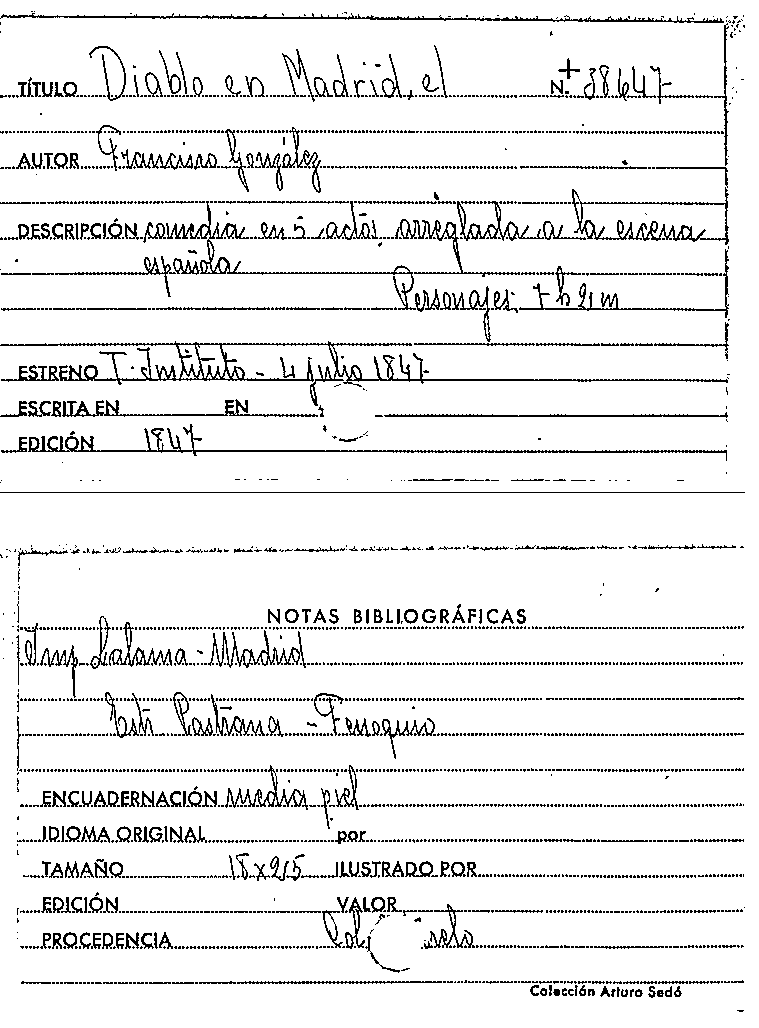 TÍTULO Diablo en Madrid, el N.º 38647
AUTOR Francisco González
DESCRIPCIÓN comedia en 5 actos arreglada a la escena
española
Personajes: 7 h 2 m
ESTRENO T. Instituto - 4 julio 1847
ESCRITA EN EN
EDICIÓN 1847
NOTAS BIBLIOGRÁFICAS
Imp Lalama - Madrid
Estr Pastrana -
ENCUADERNACIÓN media piel
IDIOMA ORIGINAL por
TAMAÑO ILUSTRADO POR
EDICIÓN VALOR
PROCEDENCIA Col.
Colección Arturo Sedó